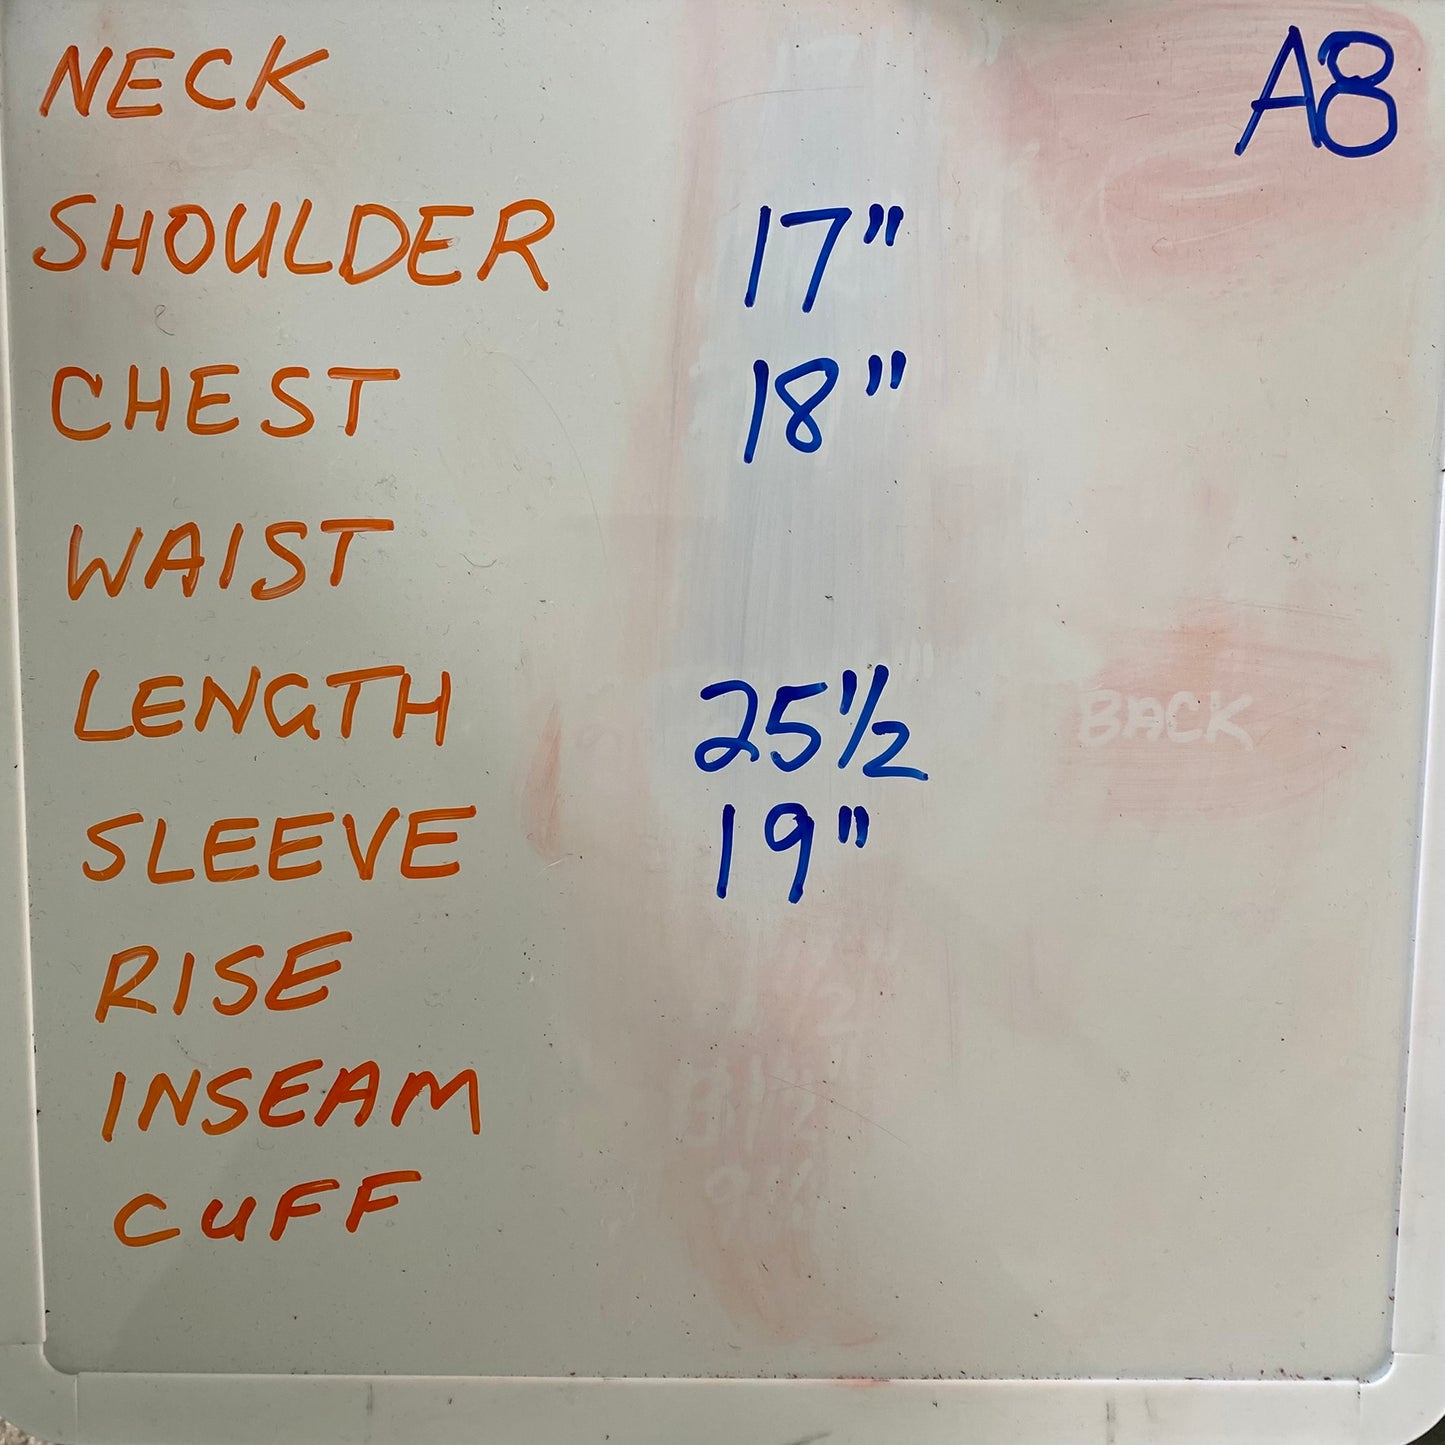 NECK A8
SHOULDER 17"
CHEST 18"
WAIST
LENGTH 25 1/2 BACK
SLEEVE 19"
RISE
INSEAM
CUFF